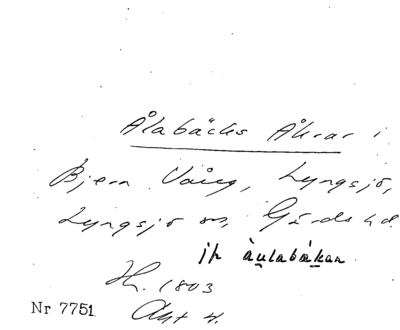 Ålabäcks Åkrar i
Bjern Vång, Lyngsjö,
Lyngsjö sn, Gärds hd.
jfr àulabákan
H. 1803
Akt 4.
Nr 7751